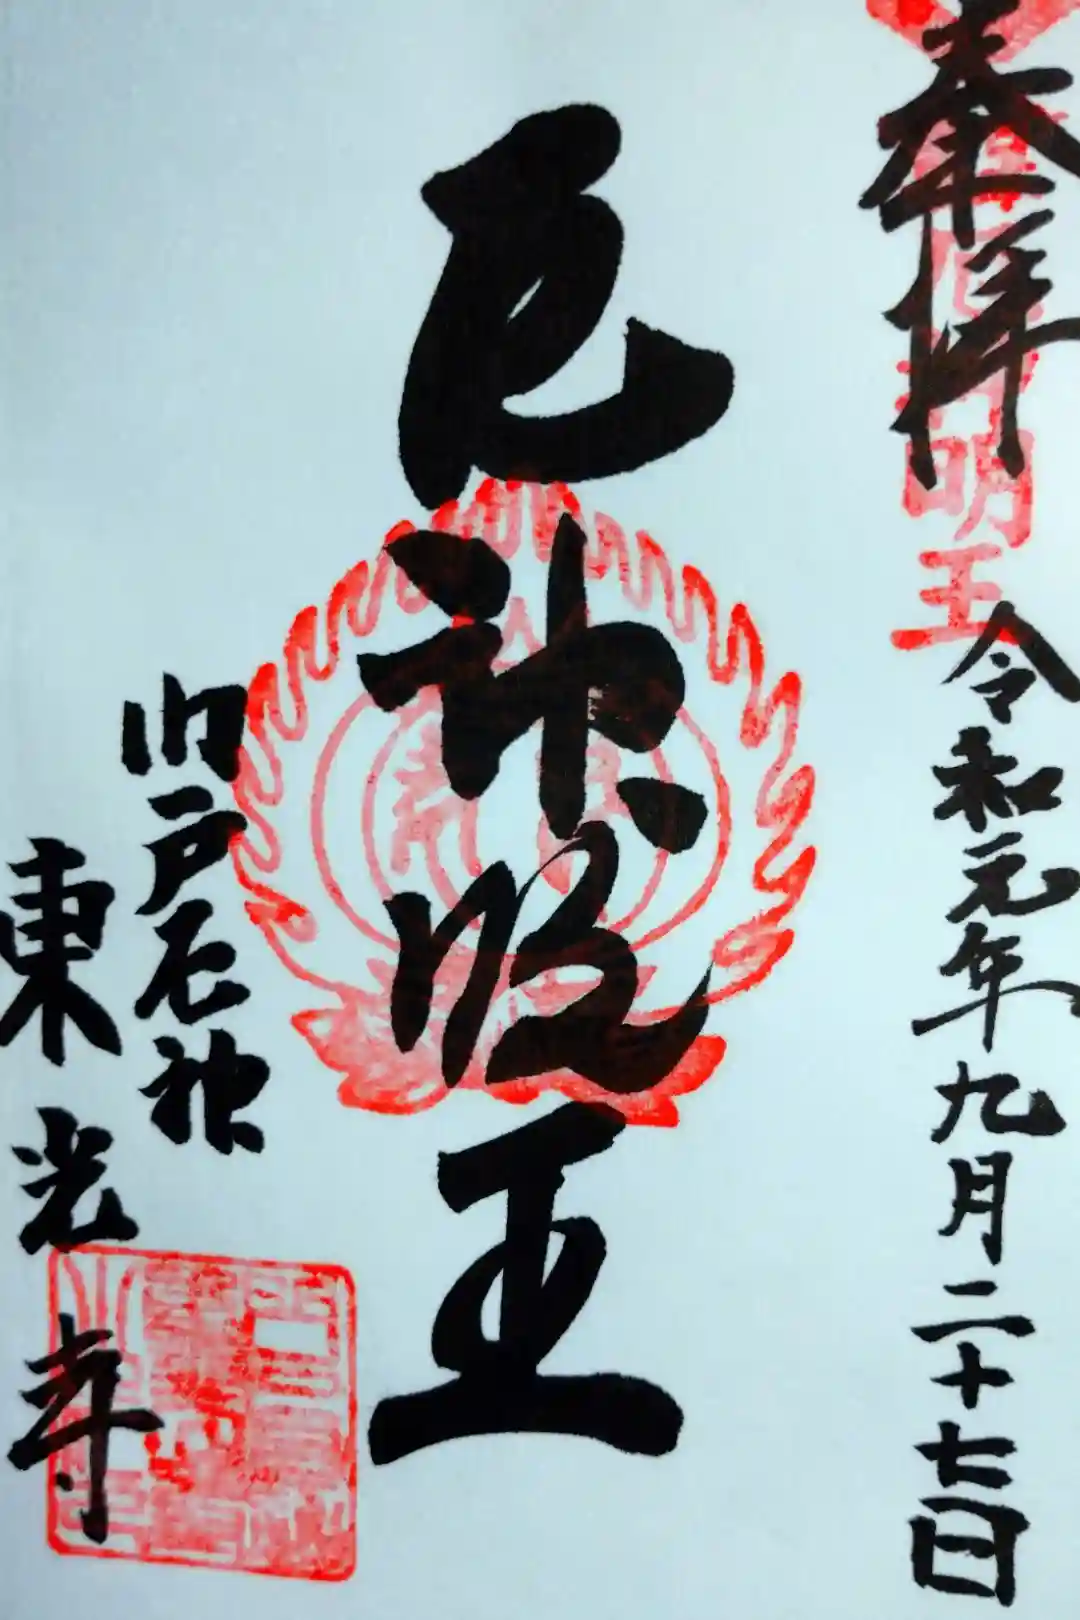 奉拝
明王
令和元年九月二十七日
厄神明王
门戸厄神
東光寺